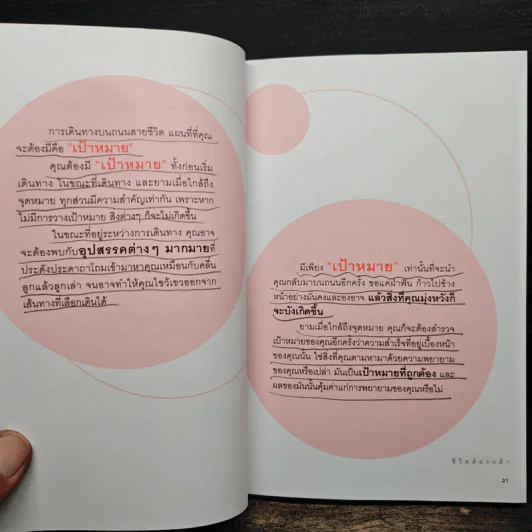 การเดินทางบนถนนสายชีวิต แผนที่ที่คุณ
จะต้องมีคือ "เป้าหมาย"
คุณต้องมี "เป้าหมาย" ทั้งก่อนเริ่ม
เดินทาง ในขณะที่เดินทาง และยามเมื่อใกล้ถึง
จุดหมาย ทุกส่วนมีความสำคัญเท่ากัน เพราะหาก
ไม่มีการวางเป้าหมาย สิ่งต่างๆ ก็จะไม่เกิดขึ้น
ในขณะที่อยู่ระหว่างการเดินทาง คุณอาจ
จะต้องพบกับอุปสรรคต่างๆ มากมายที่
ประดังประดาถาโถมเข้ามาหาคุณเหมือนกับคลื่น
ลูกแล้วลูกเล่า จนอาจทำให้คุณไขว้เขวออกจาก
เส้นทางที่เลือกเดินได้
มีเพียง "เป้าหมาย" เท่านั้นที่จะนำ
คุณกลับมาบนถนนอีกครั้ง ขอแค่ฝ่าฟัน ก้าวไปข้าง
หน้าอย่างมั่นคงและองอาจ แล้วสิ่งที่คุณมุ่งหวังก็
จะบังเกิดขึ้น
ยามเมื่อใกล้ถึงจุดหมาย คุณก็จะต้องสำรวจ
เป้าหมายของคุณอีกครั้งว่าความสำเร็จที่อยู่เบื้องหน้า
ของคุณนั้น ใช่สิ่งที่คุณตามหามาด้วยความพยายาม
ของคุณหรือเปล่า มันเป็นเป้าหมายที่ถูกต้อง และ
ผลของมันนั้นคุ้มค่าแก่การพยายามของคุณหรือไม่
ชีวิตต้องกล้า
21